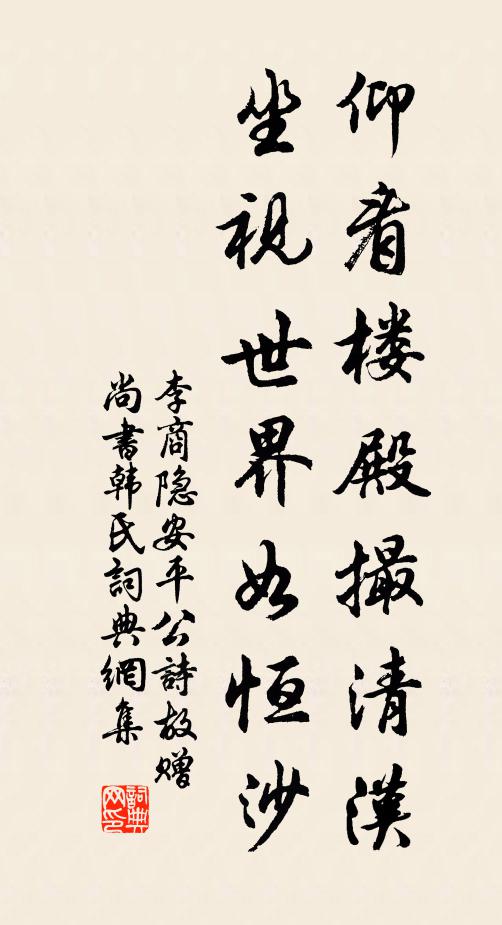 仰看楼殿撮清漢
坐视世界如恒沙
李商隐安平公詩故赠
尚書韩氏詞典網集
詞典网印